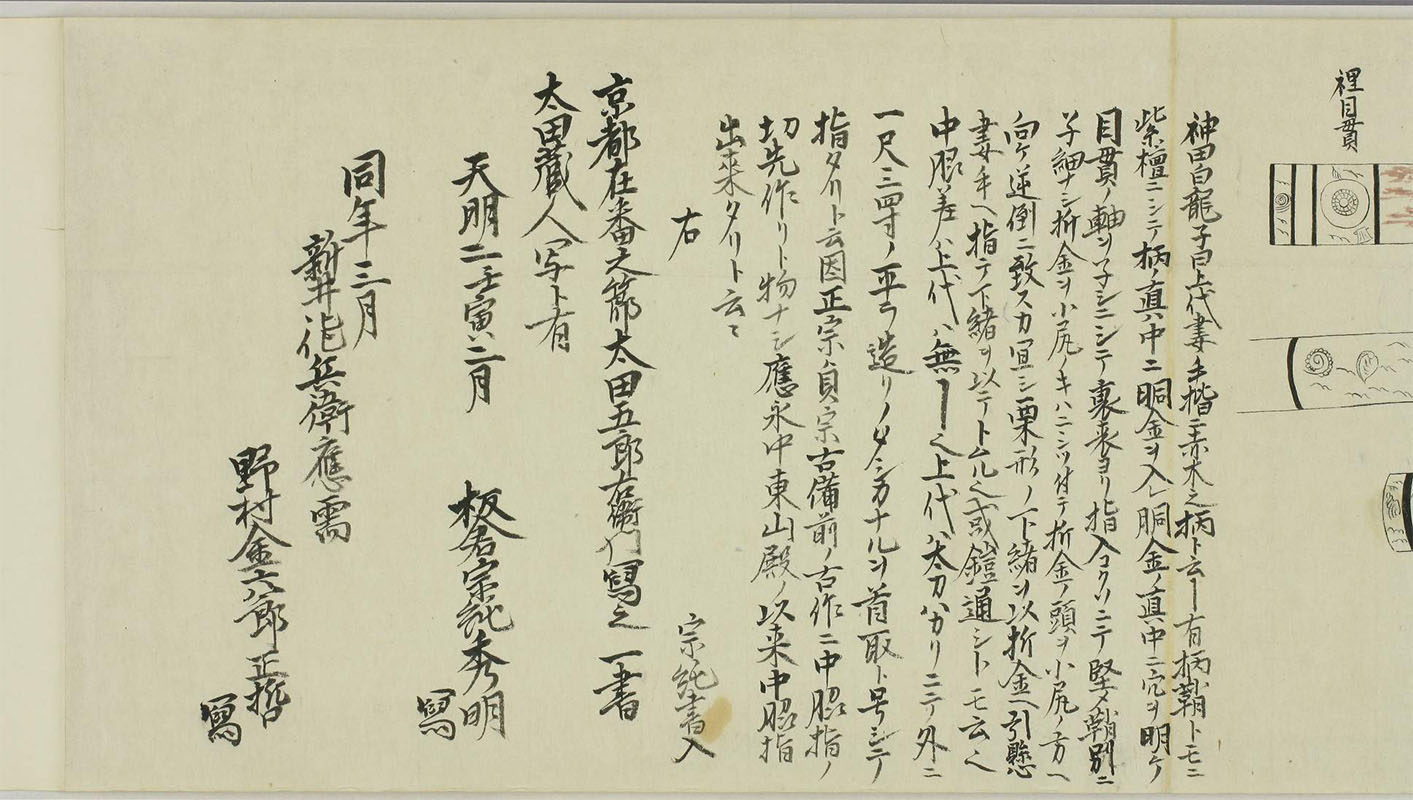 裡目貫
神田白龍子曰上代妻手指ニ赤木之柄ト云ヿ有柄鞘トモニ
紫檀ニシテ柄ノ真中ニ胴金ヲ入レ胴金ノ真中ニ穴ヲ明ケ
目貫ノ軸ヲ子シニシテ裏表ヨリ指入コクソニテ堅メ鞘別ニ
子細ナシ折金ヲ小尻ノキハニ付テ折金ノ頭ヲ小尻ノ方ヘ
向ケ逆倒ニ致スカ冝シ栗形ノ下緒ヲ以折金ヘ引懸
妻手ヘ指テ下緒ヲ以テトムル也或鎧通シトモ云也
中脇差ハ上代ハ無ヿ也上代ハ太刀ハカリニテ外ニ
一尺三四寸ノ平ラ造リノ方ナルヲ首取ト号シテ
指タリト云因正宗貞宗古備前ノ古作ニ中脇指ノ
切先作リト物ナシ應永中東山殿ノ以来中脇指
出来タリト云々
右
宗純書入
京都在番之節太田五郎右衛門寫之一書
太田蔵人写ト有
天明二壬寅二月
板倉宗純秀明
寫
同年三月
新井作兵衛應需
野村金六郎正
寫